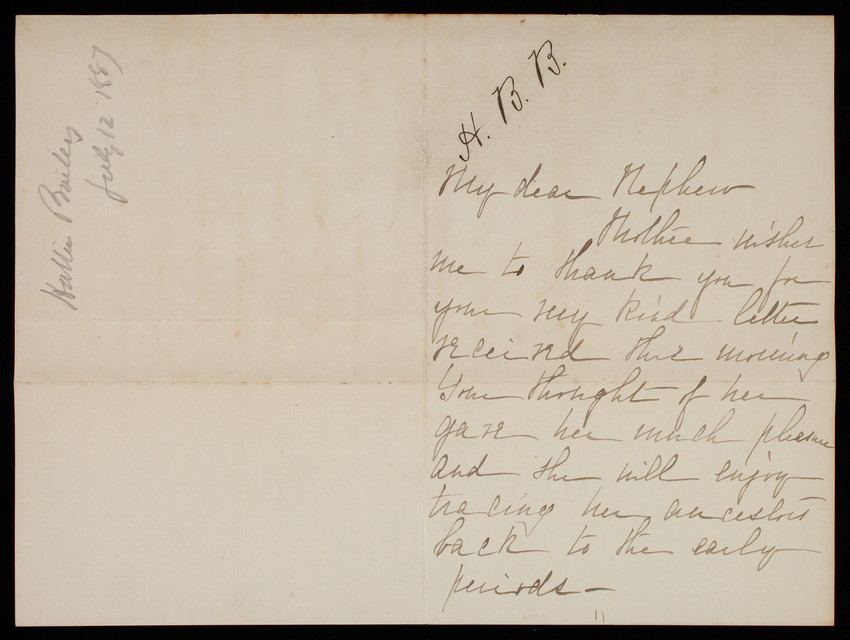 Hattie Bailey
July 12 1887
H. B. B.
My dear Nephew
Mother wishes
me to thank you for
your very kind letter
received this morning
Your thought of her
gave her much pleasure
and she will enjoy
tracing her ancestors
back to the early
periods—